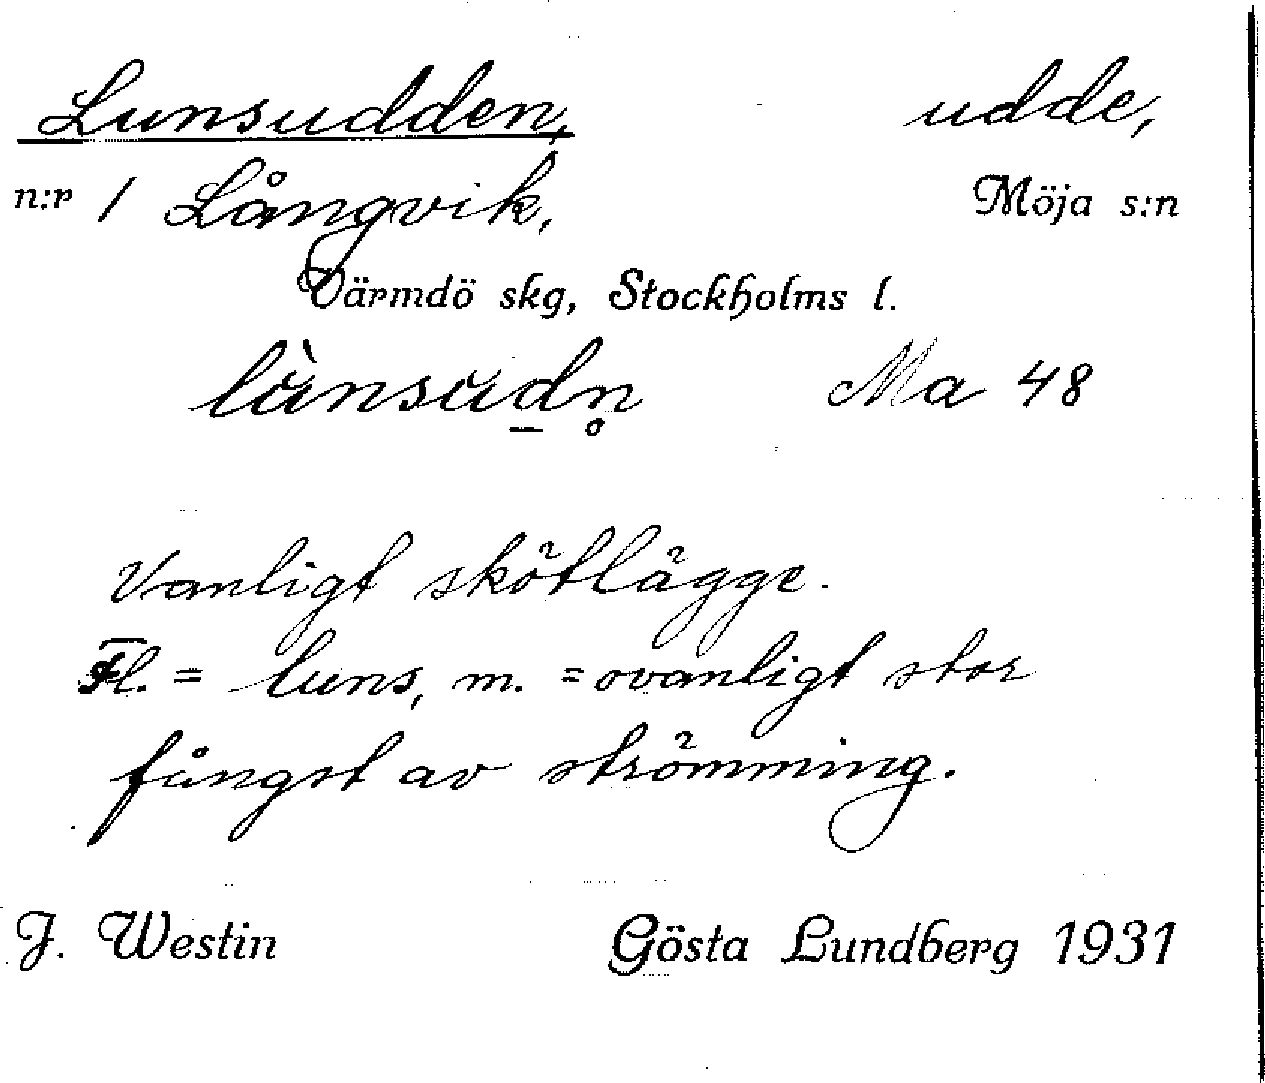 Lunsudden, udde,
n:r 1 Långvik, Möja s:n
Värmdö skg, Stockholms l.
lùnsudn̥ Ma 48
Vanligt skötlägge.
Fl. = luns, m. = ovanligt stor
fångst av strömming.
J. Westin Gösta Lundberg 1931